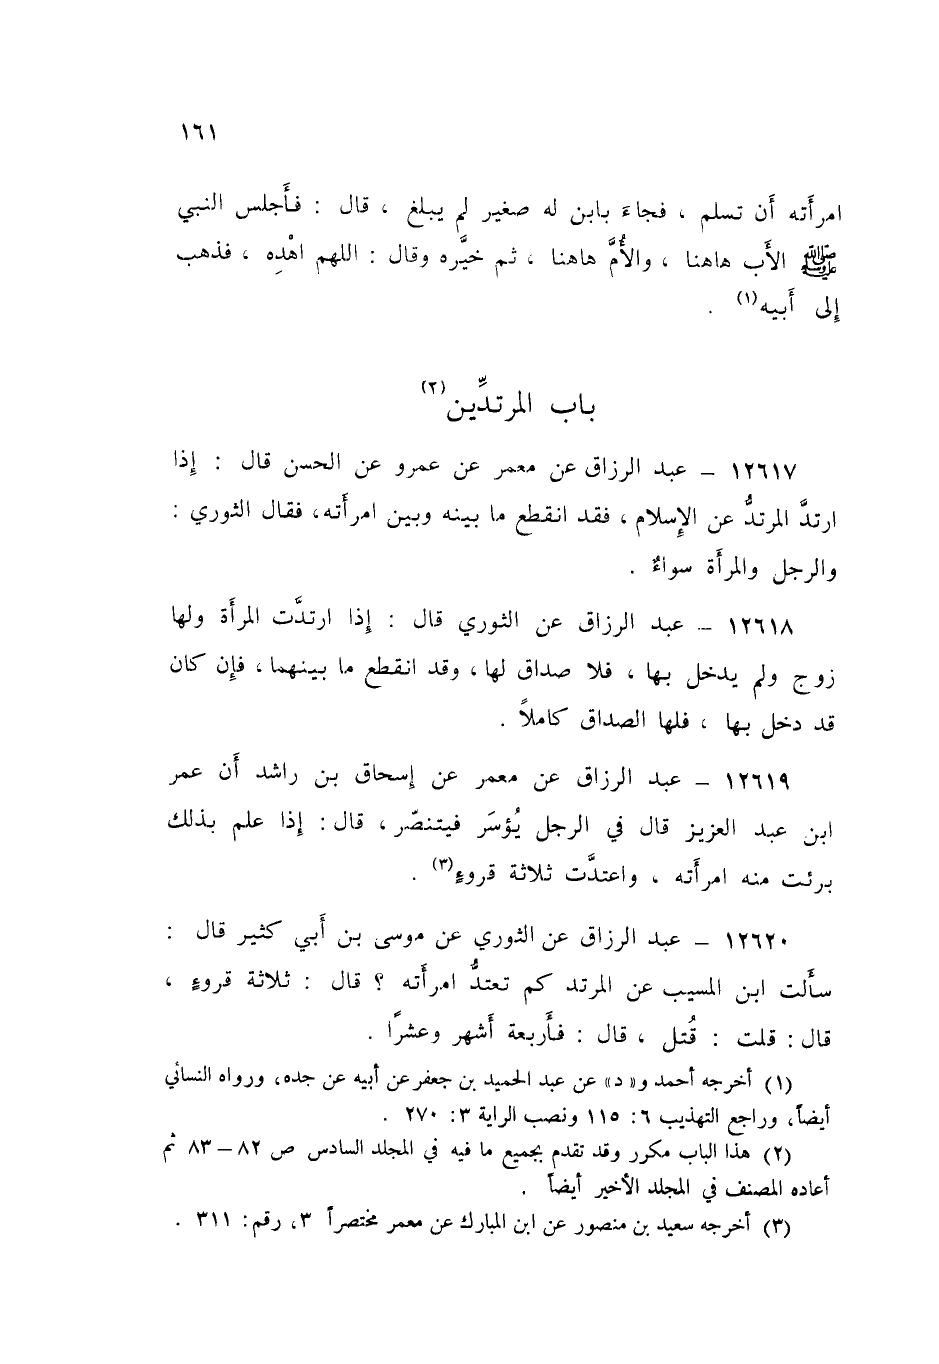 ١٦١
امرأَته أَن تسلم ، فجاءَ بابن له صغير لم يبلغ ، قال : فأَجلس النبي
ﷺ الأَب هاهنا ، والأُمَّ هاهنا ، ثم خيَّره وقال : اللهم اهْدِه ، فذهب
إِلى أَبيه(١) .
باب المرتدِّين(٢)
١٢٦١٧ – عبد الرزاق عن معمر عن عمرو عن الحسن قال : إِذا
ارتدَّ المرتدُّ عن الإِسلام ، فقد انقطع ما بينه وبين امرأَته، فقال الثوري :
والرجل والمرأَة سواءٌ .
١٢٦١٨ – عبد الرزاق عن الثوري قال : إِذا ارتدَّت المرأَة ولها
زوج ولم يدخل بها ، فلا صداق لها ، وقد انقطع ما بينهما ، فإِن كان
قد دخل بها ، فلها الصداق كاملاً .
١٢٦١٩ – عبد الرزاق عن معمر عن إِسحاق بن راشد أَن عمر
ابن عبد العزيز قال في الرجل يُؤسَر فيتنصّر ، قال : إِذا علم بذلك
برئت منه امرأَته ، واعتدَّت ثلاثة قروءٍ(٣) .
١٢٦٢٠ – عبد الرزاق عن الثوري عن موسى بن أَبي كثير قال :
سأَلت ابن المسيب عن المرتد كم تعتدُّ امرأَته ؟ قال : ثلاثة قروءٍ ،
قال : قلت : قُتل ، قال : فأَربعة أَشهر وعشرًا .
(١) أخرجه أحمد و«د» عن عبد الحميد بن جعفر عن أبيه عن جده، ورواه النسائي
أيضاً، وراجع التهذيب ٦: ١١٥ ونصب الراية ٣: ٢٧٠ .
(٢) هذا الباب مكرر وقد تقدم بجميع ما فيه في المجلد السادس ص ٨٢ – ٨٣ ثم
أعاده المصنف في المجلد الأخير أيضاً .
(٣) أخرجه سعيد بن منصور عن ابن المبارك عن معمر مختصراً ٣، رقم: ٣١١ .